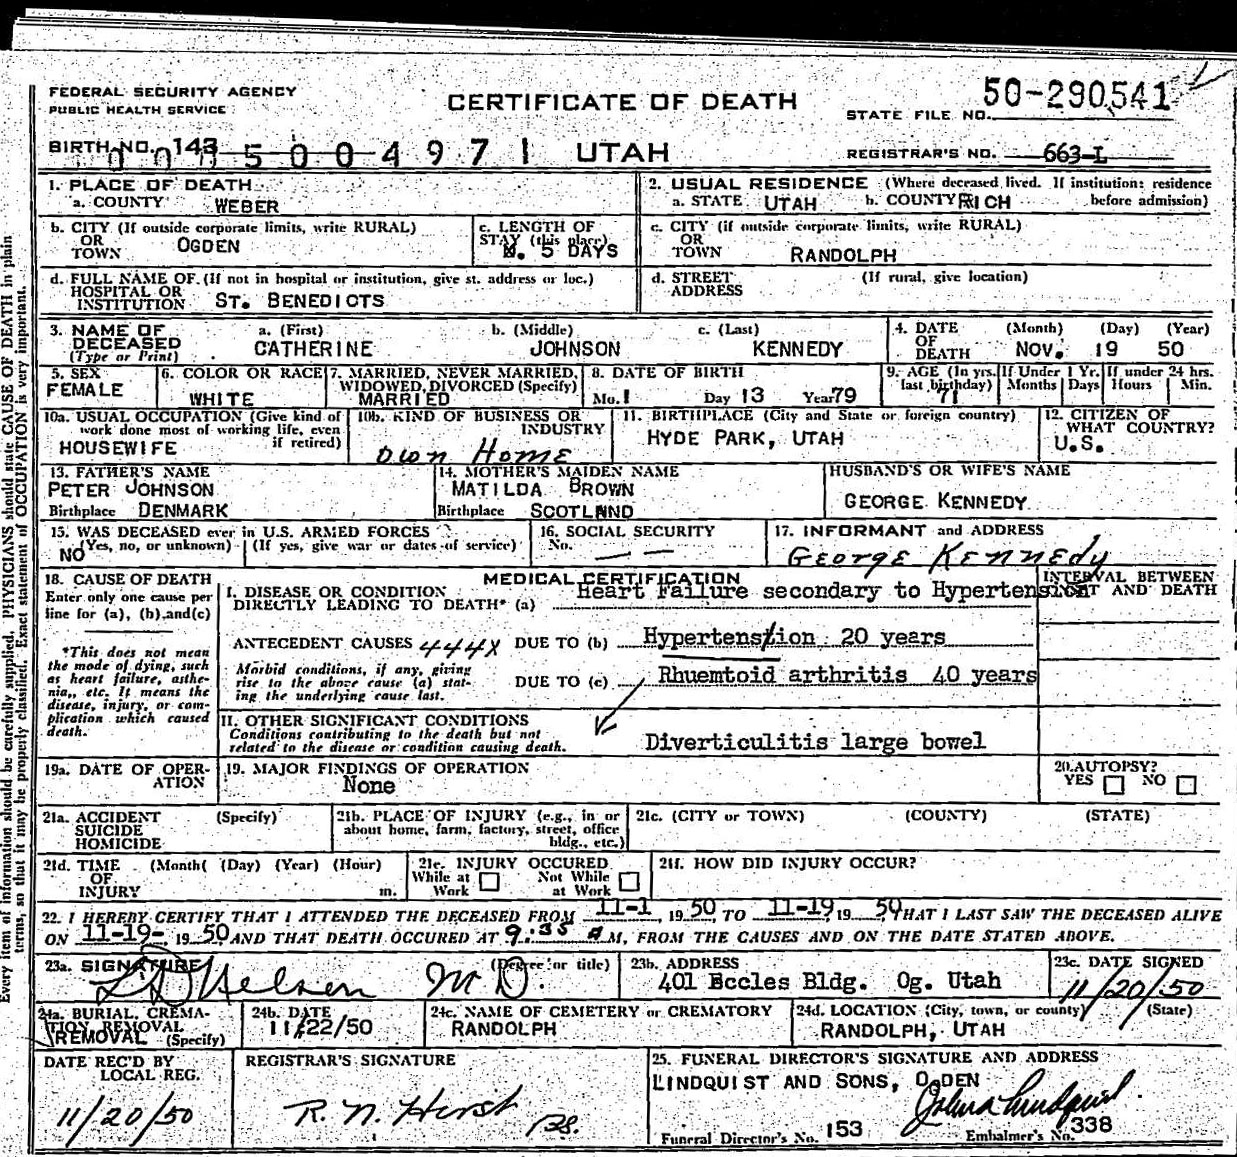 FEDERAL SECURITY AGENCY
PUBLIC HEALTH SERVICE
CERTIFICATE OF DEATH
50-290541
STATE FILE NO.
BIRTH NO. 143
0 0 5 0 0 4 9 7 1
UTAH
REGISTRAR'S NO. 663-L
1. PLACE OF DEATH
a. COUNTY WEBER
2. USUAL RESIDENCE (Where deceased lived. If institution: residence before admission)
a. STATE UTAH b. COUNTY RICH
b. CITY (If outside corporate limits, write RURAL)
OR
TOWN OGDEN
c. LENGTH OF
STAY (this place)
5 DAYS
c. CITY (if outside corporate limits, write RURAL)
OR
TOWN RANDOLPH
d. FULL NAME OF (If not in hospital or institution, give st. address or loc.)
HOSPITAL OR
INSTITUTION ST. BENEDICTS
d. STREET (If rural, give location)
ADDRESS
3. NAME OF DECEASED
(Type or Print)
a. (First) b. (Middle) c. (Last)
CATHERINE JOHNSON KENNEDY
4. DATE OF DEATH (Month) (Day) (Year)
NOV. 19 50
5. SEX
FEMALE
6. COLOR OR RACE
WHITE
7. MARRIED, NEVER MARRIED,
WIDOWED, DIVORCED (Specify)
MARRIED
8. DATE OF BIRTH
Mo. 1 Day 13 Year 79
9. AGE (In yrs. last birthday) 71
If Under 1 Yr. Months Days
If under 24 hrs. Hours Min.
10a. USUAL OCCUPATION (Give kind of work done most of working life, even if retired)
HOUSEWIFE
10b. KIND OF BUSINESS OR INDUSTRY
Own Home
11. BIRTHPLACE (City and State or foreign country)
HYDE PARK, UTAH
12. CITIZEN OF WHAT COUNTRY?
U.S.
13. FATHER'S NAME
PETER JOHNSON
Birthplace DENMARK
14. MOTHER'S MAIDEN NAME
MATILDA BROWN
Birthplace SCOTLAND
HUSBAND'S OR WIFE'S NAME
GEORGE KENNEDY
15. WAS DECEASED ever in U.S. ARMED FORCES
(Yes, no, or unknown) (If yes, give war or dates of service)
NO
16. SOCIAL SECURITY
No. — —
17. INFORMANT and ADDRESS
George Kennedy
18. CAUSE OF DEATH
Enter only one cause per line for (a), (b), and (c)
*This does not mean the mode of dying, such as heart failure, asthenia, etc. It means the disease, injury, or complication which caused death.
MEDICAL CERTIFICATION
INTERVAL BETWEEN ONSET AND DEATH
I. DISEASE OR CONDITION
DIRECTLY LEADING TO DEATH* (a) Heart Failure secondary to Hypertension
ANTECEDENT CAUSES 444X DUE TO (b) Hypertension 20 years
Morbid conditions, if any, giving rise to the above cause (a) stating the underlying cause last.
DUE TO (c) Rhuemtoid arthritis 40 years
II. OTHER SIGNIFICANT CONDITIONS
Conditions contributing to the death but not
related to the disease or condition causing death.
Diverticulitis large bowel
19a. DATE OF OPERATION
19. MAJOR FINDINGS OF OPERATION
None
20. AUTOPSY?
YES NO
21a. ACCIDENT (Specify)
SUICIDE
HOMICIDE
21b. PLACE OF INJURY (e.g., in or about home, farm, factory, street, office bldg., etc.)
21c. (CITY or TOWN) (COUNTY) (STATE)
21d. TIME (Month( (Day) (Year) (Hour)
OF
INJURY m.
21e. INJURY OCCURED
While at Work Not While at Work
21f. HOW DID INJURY OCCUR?
22. I HEREBY CERTIFY THAT I ATTENDED THE DECEASED FROM 11-1, 1950 TO 11-19, 1950 THAT I LAST SAW THE DECEASED ALIVE
ON 11-19- 1950, AND THAT DEATH OCCURED AT 9:35 a M, FROM THE CAUSES AND ON THE DATE STATED ABOVE.
23a. SIGNATURE (Degree or title)
Nelson M D.
23b. ADDRESS
401 Eccles Bldg. Og. Utah
23c. DATE SIGNED
11/20/50
24a. BURIAL, CREMATION, REMOVAL
REMOVAL (Specify)
24b. DATE
11/22/50
24c. NAME OF CEMETERY or CREMATORY
RANDOLPH
24d. LOCATION (City, town, or county) (State)
RANDOLPH, UTAH
DATE REC'D BY
LOCAL REG.
11/20/50
REGISTRAR'S SIGNATURE
R. N. Hirst
25. FUNERAL DIRECTOR'S SIGNATURE AND ADDRESS
LINDQUIST AND SONS, OGDEN
Funeral Director's No. 153 Embalmer's No. 338
Every item of information should be carefully supplied. PHYSICIANS should state CAUSE OF DEATH in plain
terms, so that it may be properly classified. Exact statement of OCCUPATION is very important.